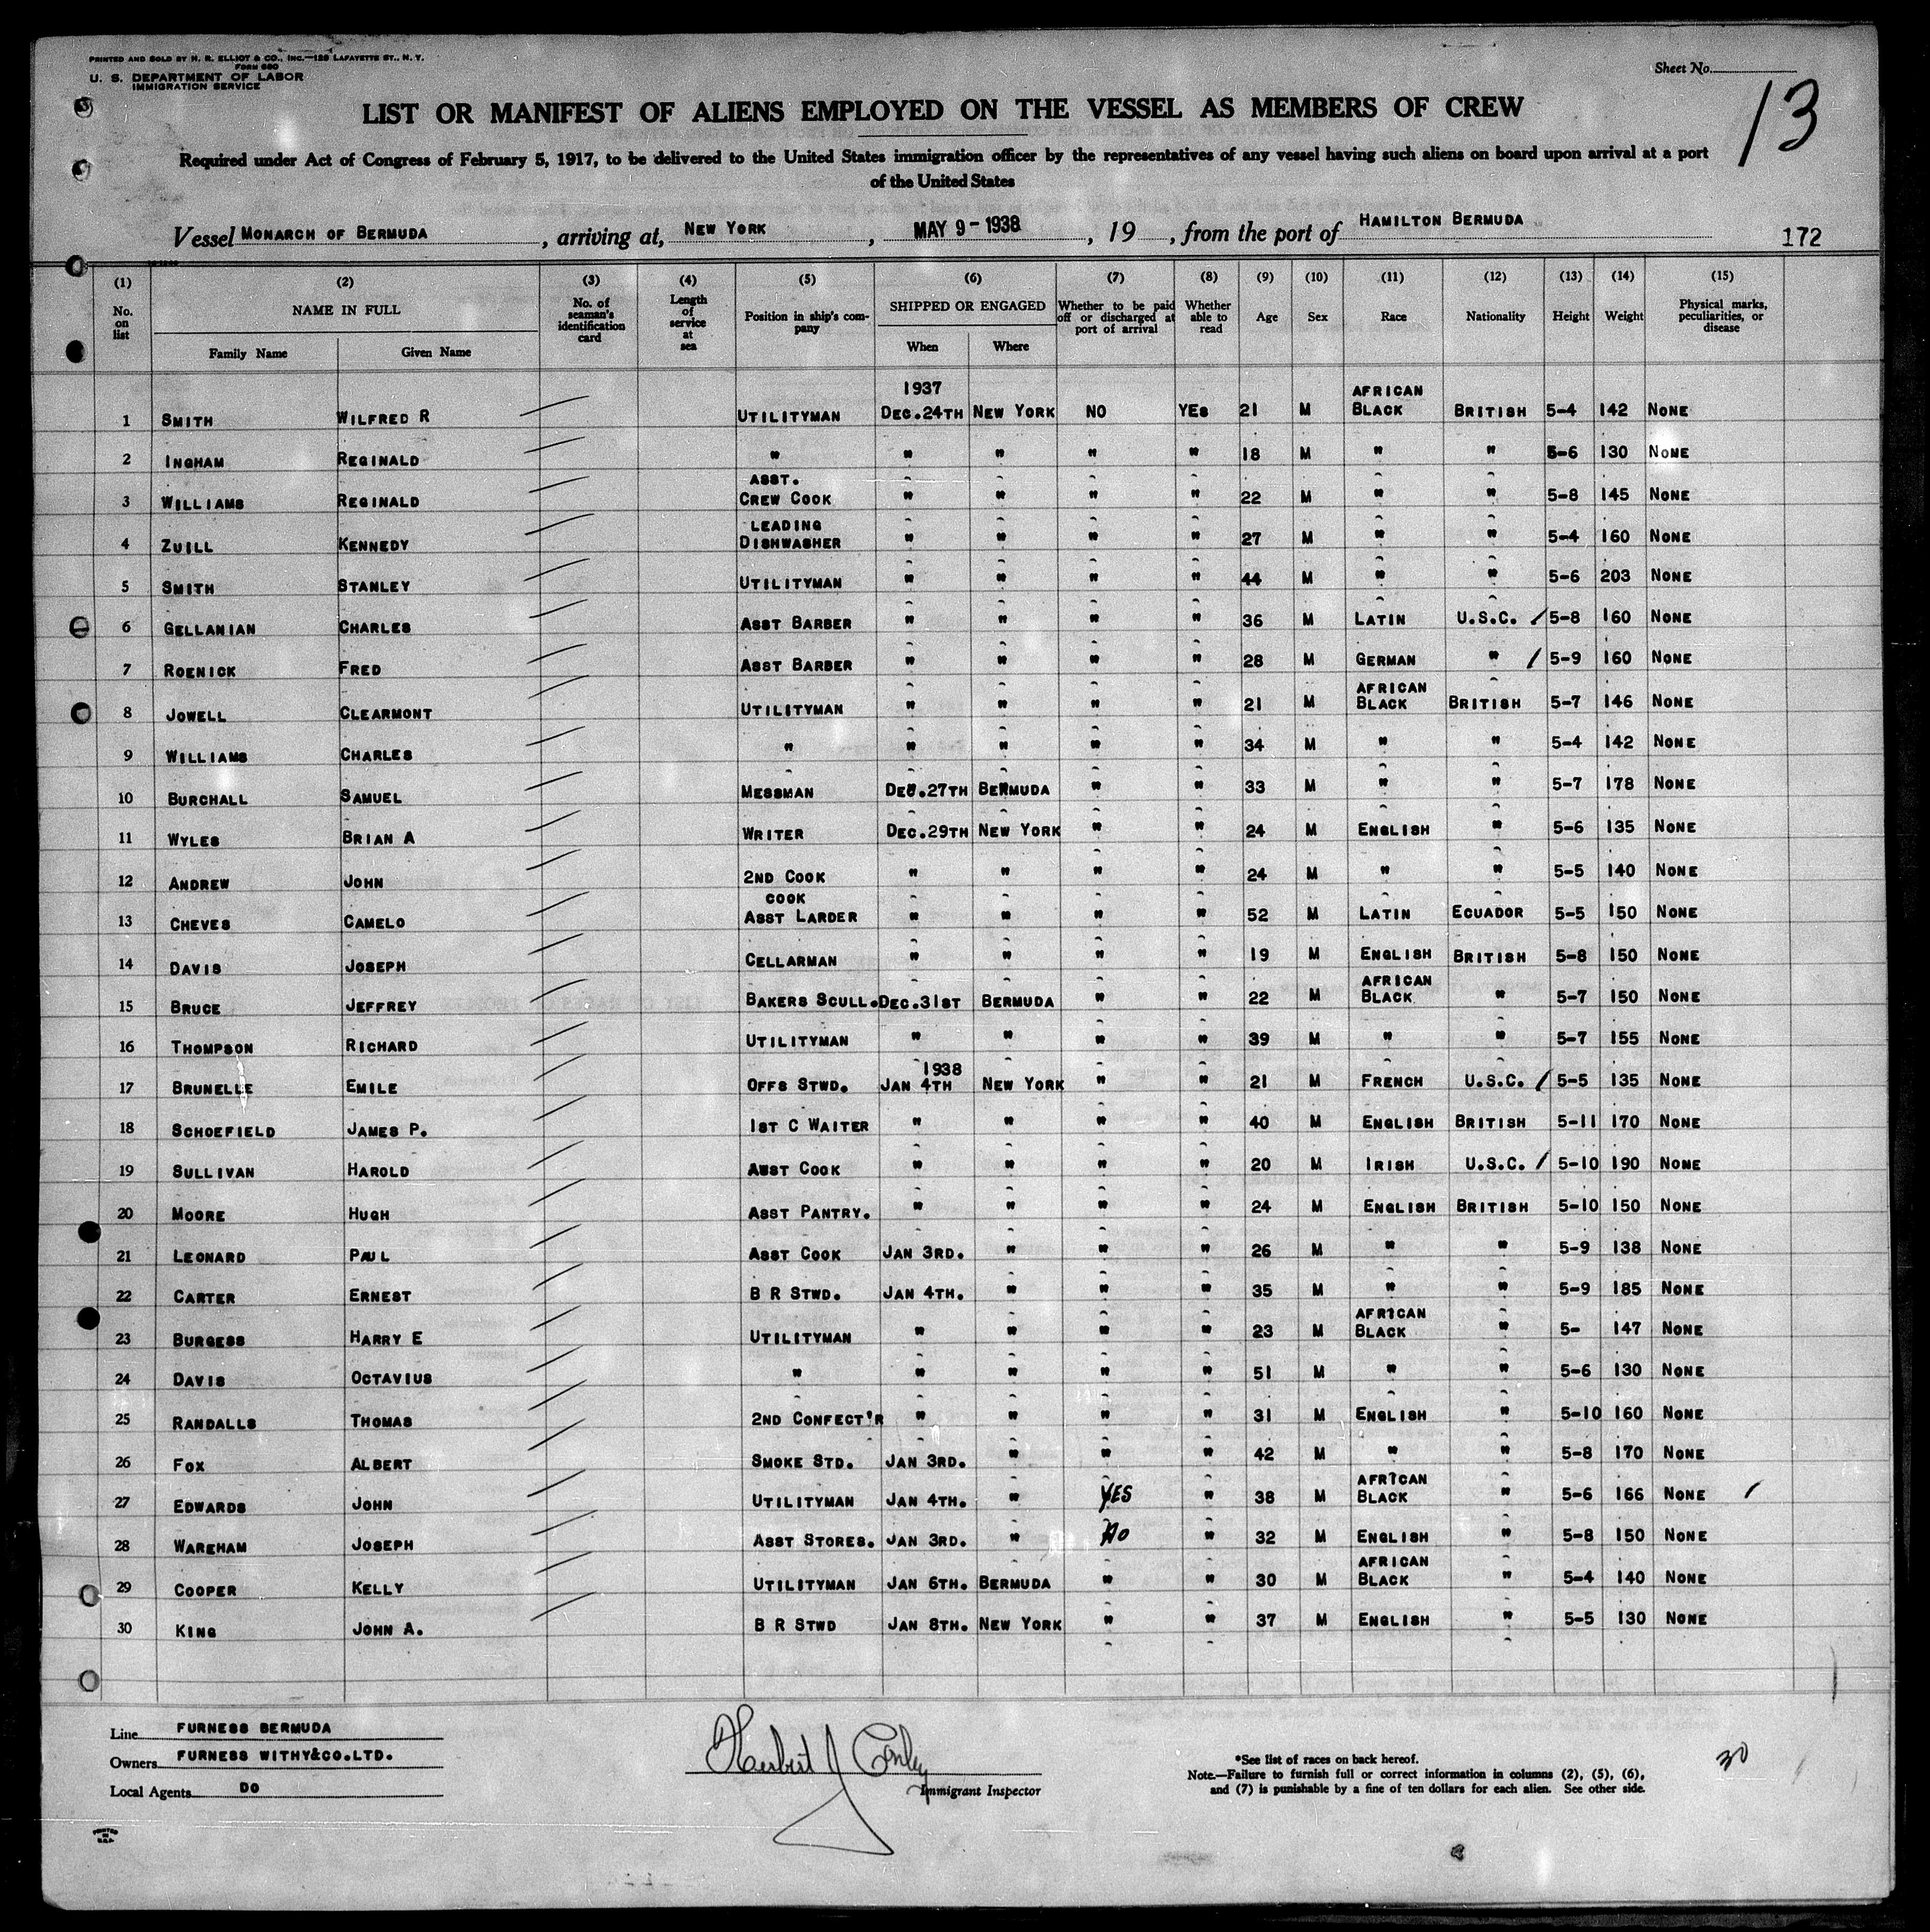 PRINTED AND SOLD BY H. R. ELLIOT & CO., INC.—129 LAFAYETTE ST., N. Y.
FORM 680
U. S. DEPARTMENT OF LABOR
IMMIGRATION SERVICE
Sheet No.
13
LIST OR MANIFEST OF ALIENS EMPLOYED ON THE VESSEL AS MEMBERS OF CREW
Required under Act of Congress of February 5, 1917, to be delivered to the United States immigration officer by the representatives of any vessel having such aliens on board upon arrival at a port
of the United States
Vessel MONARCH OF BERMUDA, arriving at, NEW YORK, MAY 9-1938, 19, from the port of HAMILTON BERMUDA
172
(1) (2) (3) (4) (5) (6) (7) (8) (9) (10) (11) (12) (13) (14) (15)
No. on list NAME IN FULL Family Name Given Name No. of seaman's identification card Length of service at sea Position in ship's company SHIPPED OR ENGAGED When Where Whether to be paid off or discharged at port of arrival Whether able to read Age Sex Race Nationality Height Weight Physical marks, peculiarities, or disease
1937 AFRICAN
1 SMITH WILFRED R UTILITYMAN DEC.24TH NEW YORK NO YES 21 M BLACK BRITISH 5-4 142 NONE
2 INGHAM REGINALD " " " " " 18 M " " 5-6 130 NONE
ASST.
3 WILLIAMS REGINALD CREW COOK " " " " 22 M " " 5-8 145 NONE
LEADING
4 ZUILL KENNEDY DISHWASHER " " " " 27 M " " 5-4 160 NONE
5 SMITH STANLEY UTILITYMAN " " " " 44 M " " 5-6 203 NONE
6 GELLANIAN CHARLES ASST BARBER " " " " 36 M LATIN U.S.C. 5-8 160 NONE
7 ROENICK FRED ASST BARBER " " " " 28 M GERMAN " 5-9 160 NONE
AFRICAN
8 JOWELL CLEARMONT UTILITYMAN " " " " 21 M BLACK BRITISH 5-7 146 NONE
9 WILLIAMS CHARLES " " " " " 34 M " " 5-4 142 NONE
10 BURCHALL SAMUEL MESSMAN DEC.27TH BERMUDA " " 33 M " " 5-7 178 NONE
11 WYLES BRIAN A WRITER DEC.29TH NEW YORK " " 24 M ENGLISH " 5-6 135 NONE
12 ANDREW JOHN 2ND COOK " " " " 24 M " " 5-5 140 NONE
COOK
13 CHEVES CAMELO ASST LARDER " " " " 52 M LATIN ECUADOR 5-5 150 NONE
14 DAVIS JOSEPH CELLARMAN " " " " 19 M ENGLISH BRITISH 5-8 150 NONE
AFRICAN
15 BRUCE JEFFREY BAKERS SCULL. DEC.31ST BERMUDA " " 22 M BLACK " 5-7 150 NONE
16 THOMPSON RICHARD UTILITYMAN " " " " 39 M " " 5-7 155 NONE
1938
17 BRUNELLE EMILE OFFS STWD. JAN 4TH NEW YORK " " 21 M FRENCH U.S.C. 5-5 135 NONE
18 SCHOEFIELD JAMES P. 1ST C WAITER " " " " 40 M ENGLISH BRITISH 5-11 170 NONE
19 SULLIVAN HAROLD ASST COOK " " " " 20 M IRISH U.S.C. 5-10 190 NONE
20 MOORE HUGH ASST PANTRY. " " " " 24 M ENGLISH BRITISH 5-10 150 NONE
21 LEONARD PAUL ASST COOK JAN 3RD. " " " 26 M " " 5-9 138 NONE
22 CARTER ERNEST B R STWD. JAN 4TH. " " " 35 M " " 5-9 185 NONE
AFRICAN
23 BURGESS HARRY E UTILITYMAN " " " " 23 M BLACK " 5- 147 NONE
24 DAVIS OCTAVIUS " " " " " 51 M " " 5-6 130 NONE
25 RANDALLS THOMAS 2ND CONFECT'R " " " " 31 M ENGLISH " 5-10 160 NONE
26 FOX ALBERT SMOKE STD. JAN 3RD. " " " 42 M " " 5-8 170 NONE
AFRICAN
27 EDWARDS JOHN UTILITYMAN JAN 4TH. " YES " 38 M BLACK " 5-6 166 NONE
28 WAREHAM JOSEPH ASST STORES. JAN 3RD. " NO " 32 M ENGLISH " 5-8 150 NONE
AFRICAN
29 COOPER KELLY UTILITYMAN JAN 6TH. BERMUDA " " 30 M BLACK " 5-4 140 NONE
30 KING JOHN A. B R STWD JAN 8TH. NEW YORK " " 37 M ENGLISH " 5-5 130 NONE
Line FURNESS BERMUDA
Owners FURNESS WITHY&CO.LTD.
Local Agents DO
Herbert J Conley
Immigrant Inspector
*See list of races on back hereof.
Note.—Failure to furnish full or correct information in columns (2), (5), (6),
and (7) is punishable by a fine of ten dollars for each alien. See other side.
30
PRINTED
IN
U.S.A.